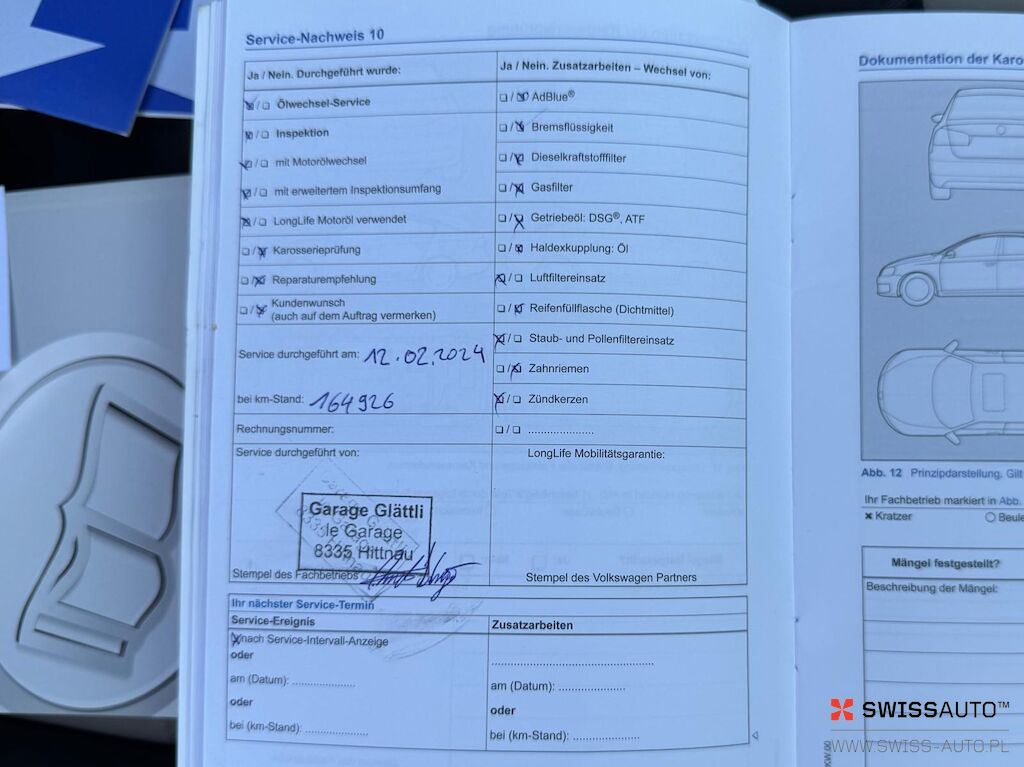 Service-Nachweis 10
Ja / Nein. Durchgeführt wurde:
Ölwechsel-Service
Inspektion
mit Motorölwechsel
mit erweitertem Inspektionsumfang
LongLife Motoröl verwendet
Karosserieprüfung
Reparaturempfehlung
Kundenwunsch
(auch auf dem Auftrag vermerken)
Service durchgeführt am: 12.02.2024
bei km-Stand: 164926
Rechnungsnummer:
Service durchgeführt von:
Garage Glättli
le Garage
8335 Hittnau
Stempel des Fachbetriebs
Ja / Nein. Zusatzarbeiten – Wechsel von:
AdBlue®
Bremsflüssigkeit
Dieselkraftstofffilter
Gasfilter
Getriebeöl: DSG®, ATF
Haldexkupplung: Öl
Luftfiltereinsatz
Reifenfüllflasche (Dichtmittel)
Staub- und Pollenfiltereinsatz
Zahnriemen
Zündkerzen
LongLife Mobilitätsgarantie:
Stempel des Volkswagen Partners
Ihr nächster Service-Termin
Service-Ereignis
nach Service-Intervall-Anzeige
oder
am (Datum):
oder
bei (km-Stand):
Zusatzarbeiten
am (Datum):
oder
bei (km-Stand):
Dokumentation der Karo
Abb. 12 Prinzipdarstellung. Gilt
Ihr Fachbetrieb markiert in Abb.
Kratzer Beule
Mängel festgestellt?
Beschreibung der Mängel:
SWISSAUTO™
WWW.SWISS-AUTO.PL